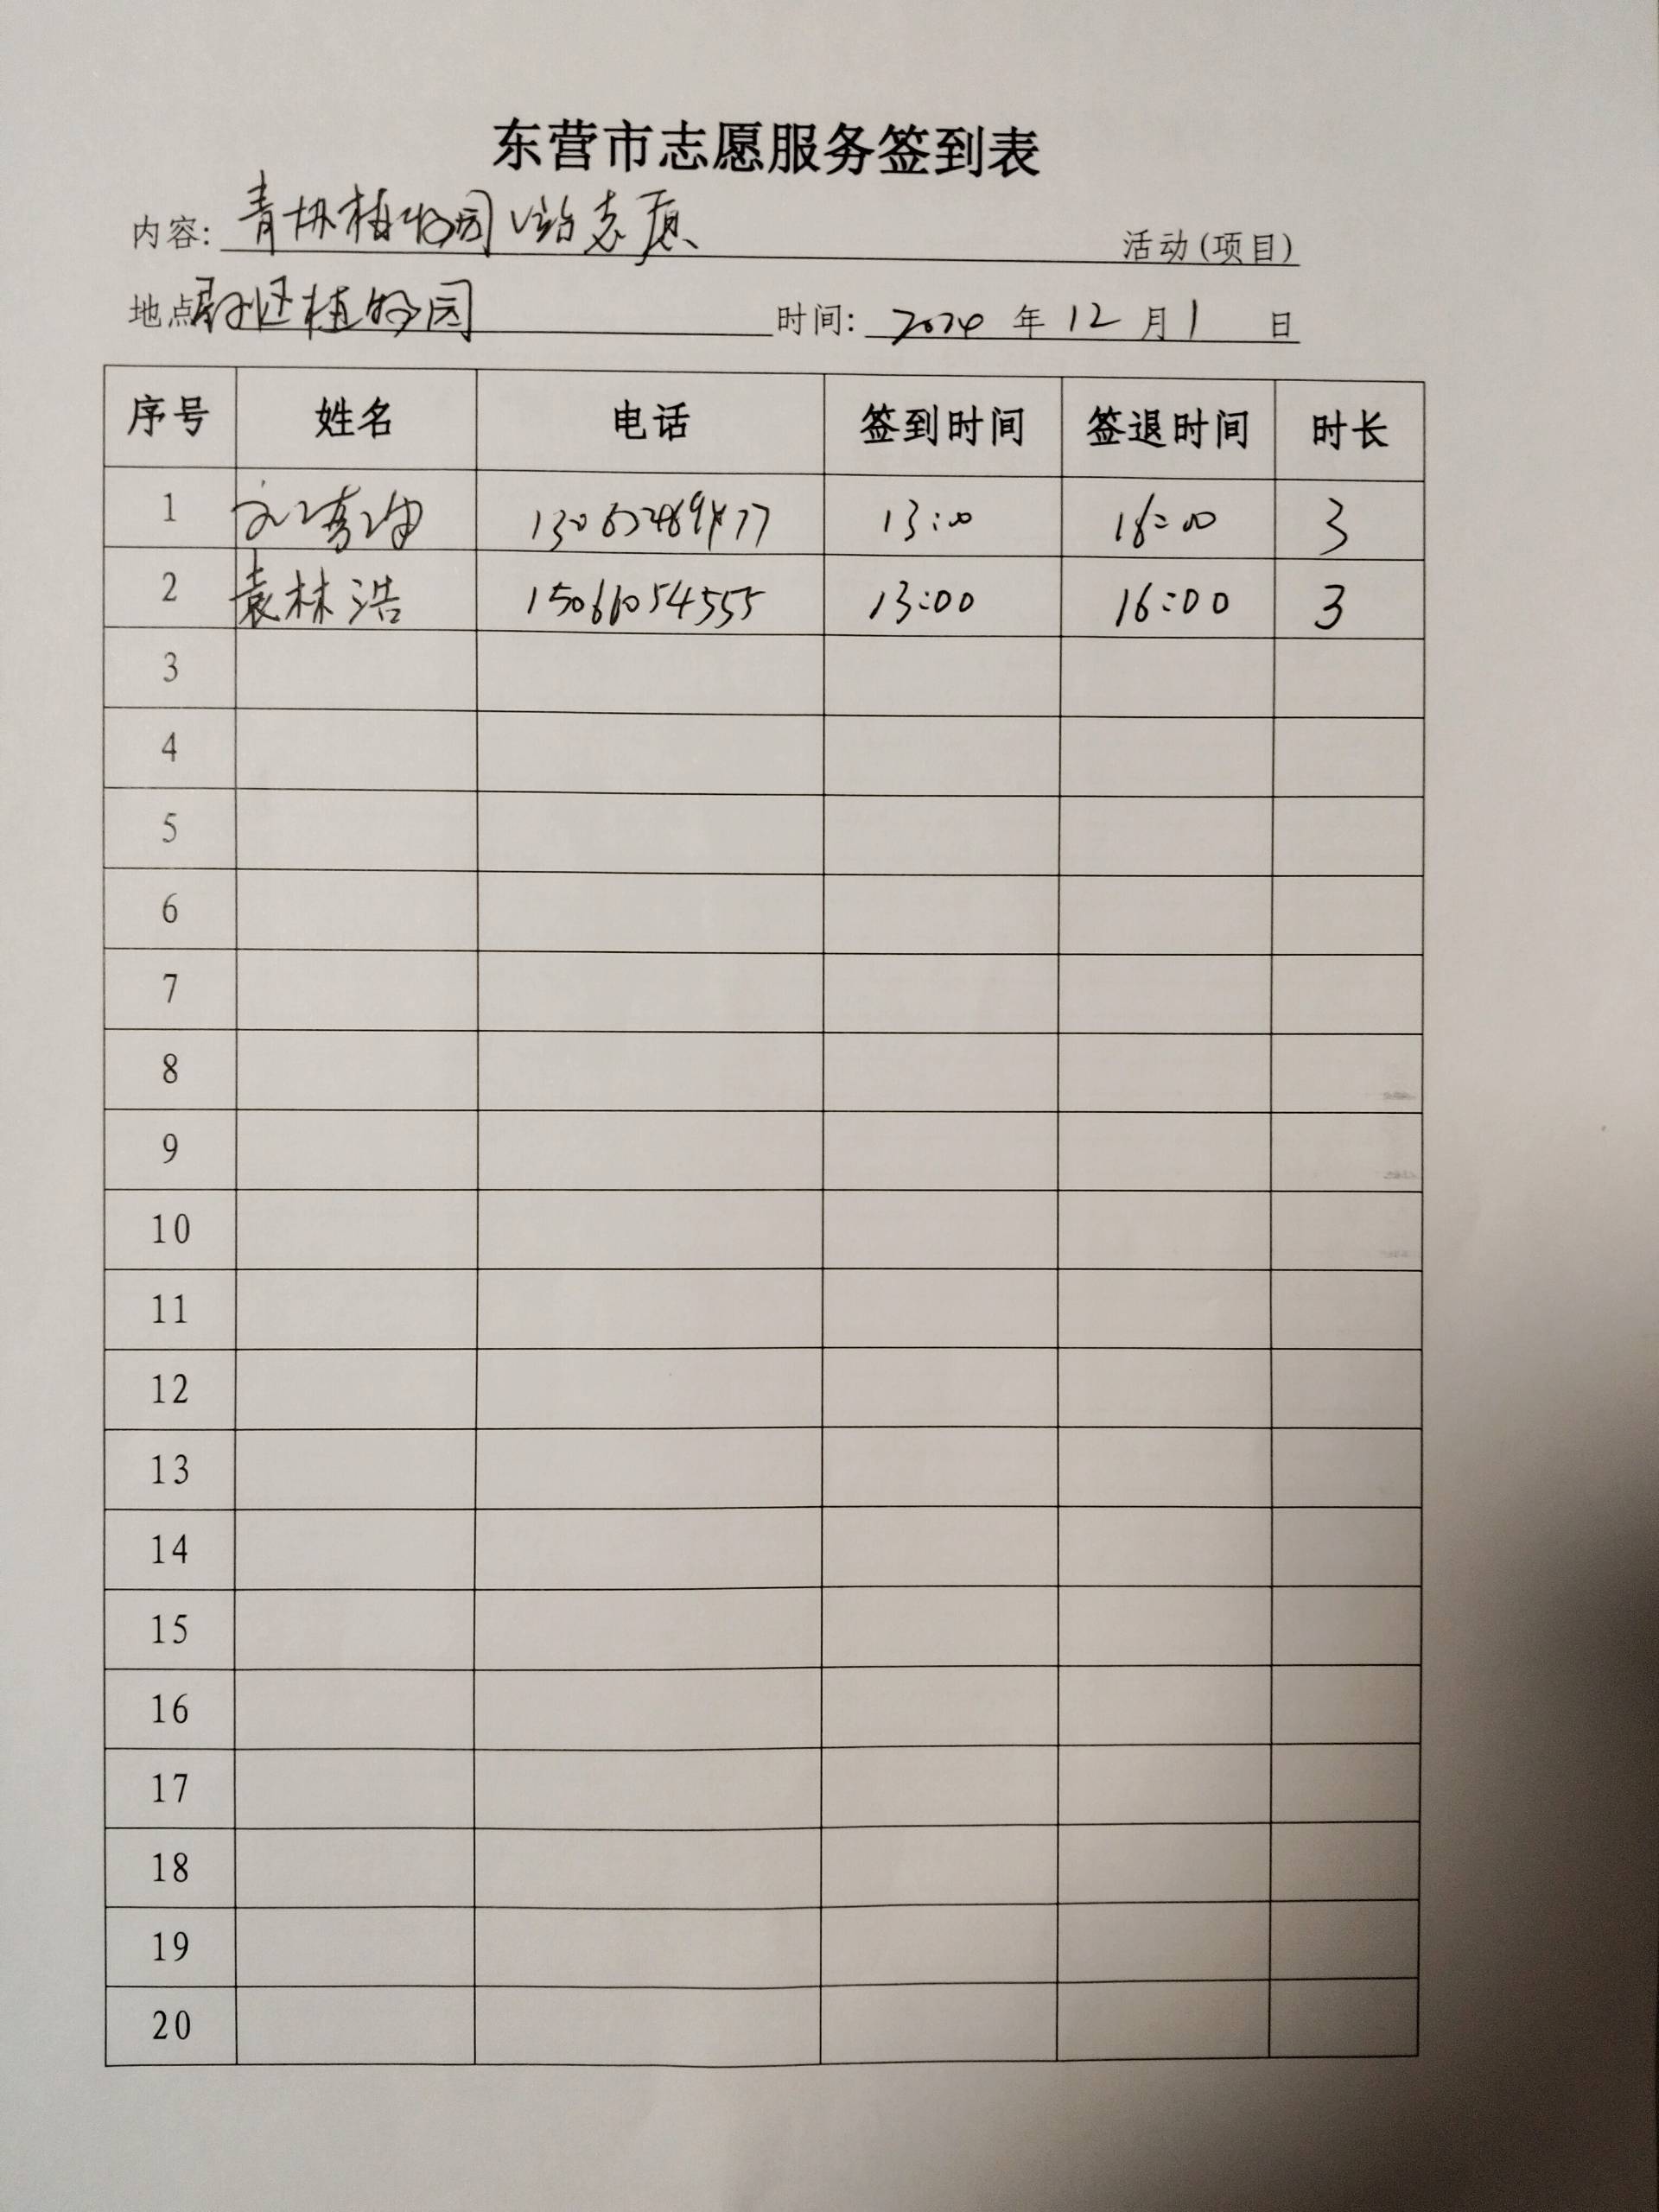 东营市志愿服务签到表
内容: 青协植物园V站志愿 活动(项目)
地点 植物园 时间: 2024 年 12 月 1 日
序号 姓名 电话 签到时间 签退时间 时长
1 13:00 16:00 3
2 袁林浩 15066054555 13:00 16:00 3
3
4
5
6
7
8
9
10
11
12
13
14
15
16
17
18
19
20